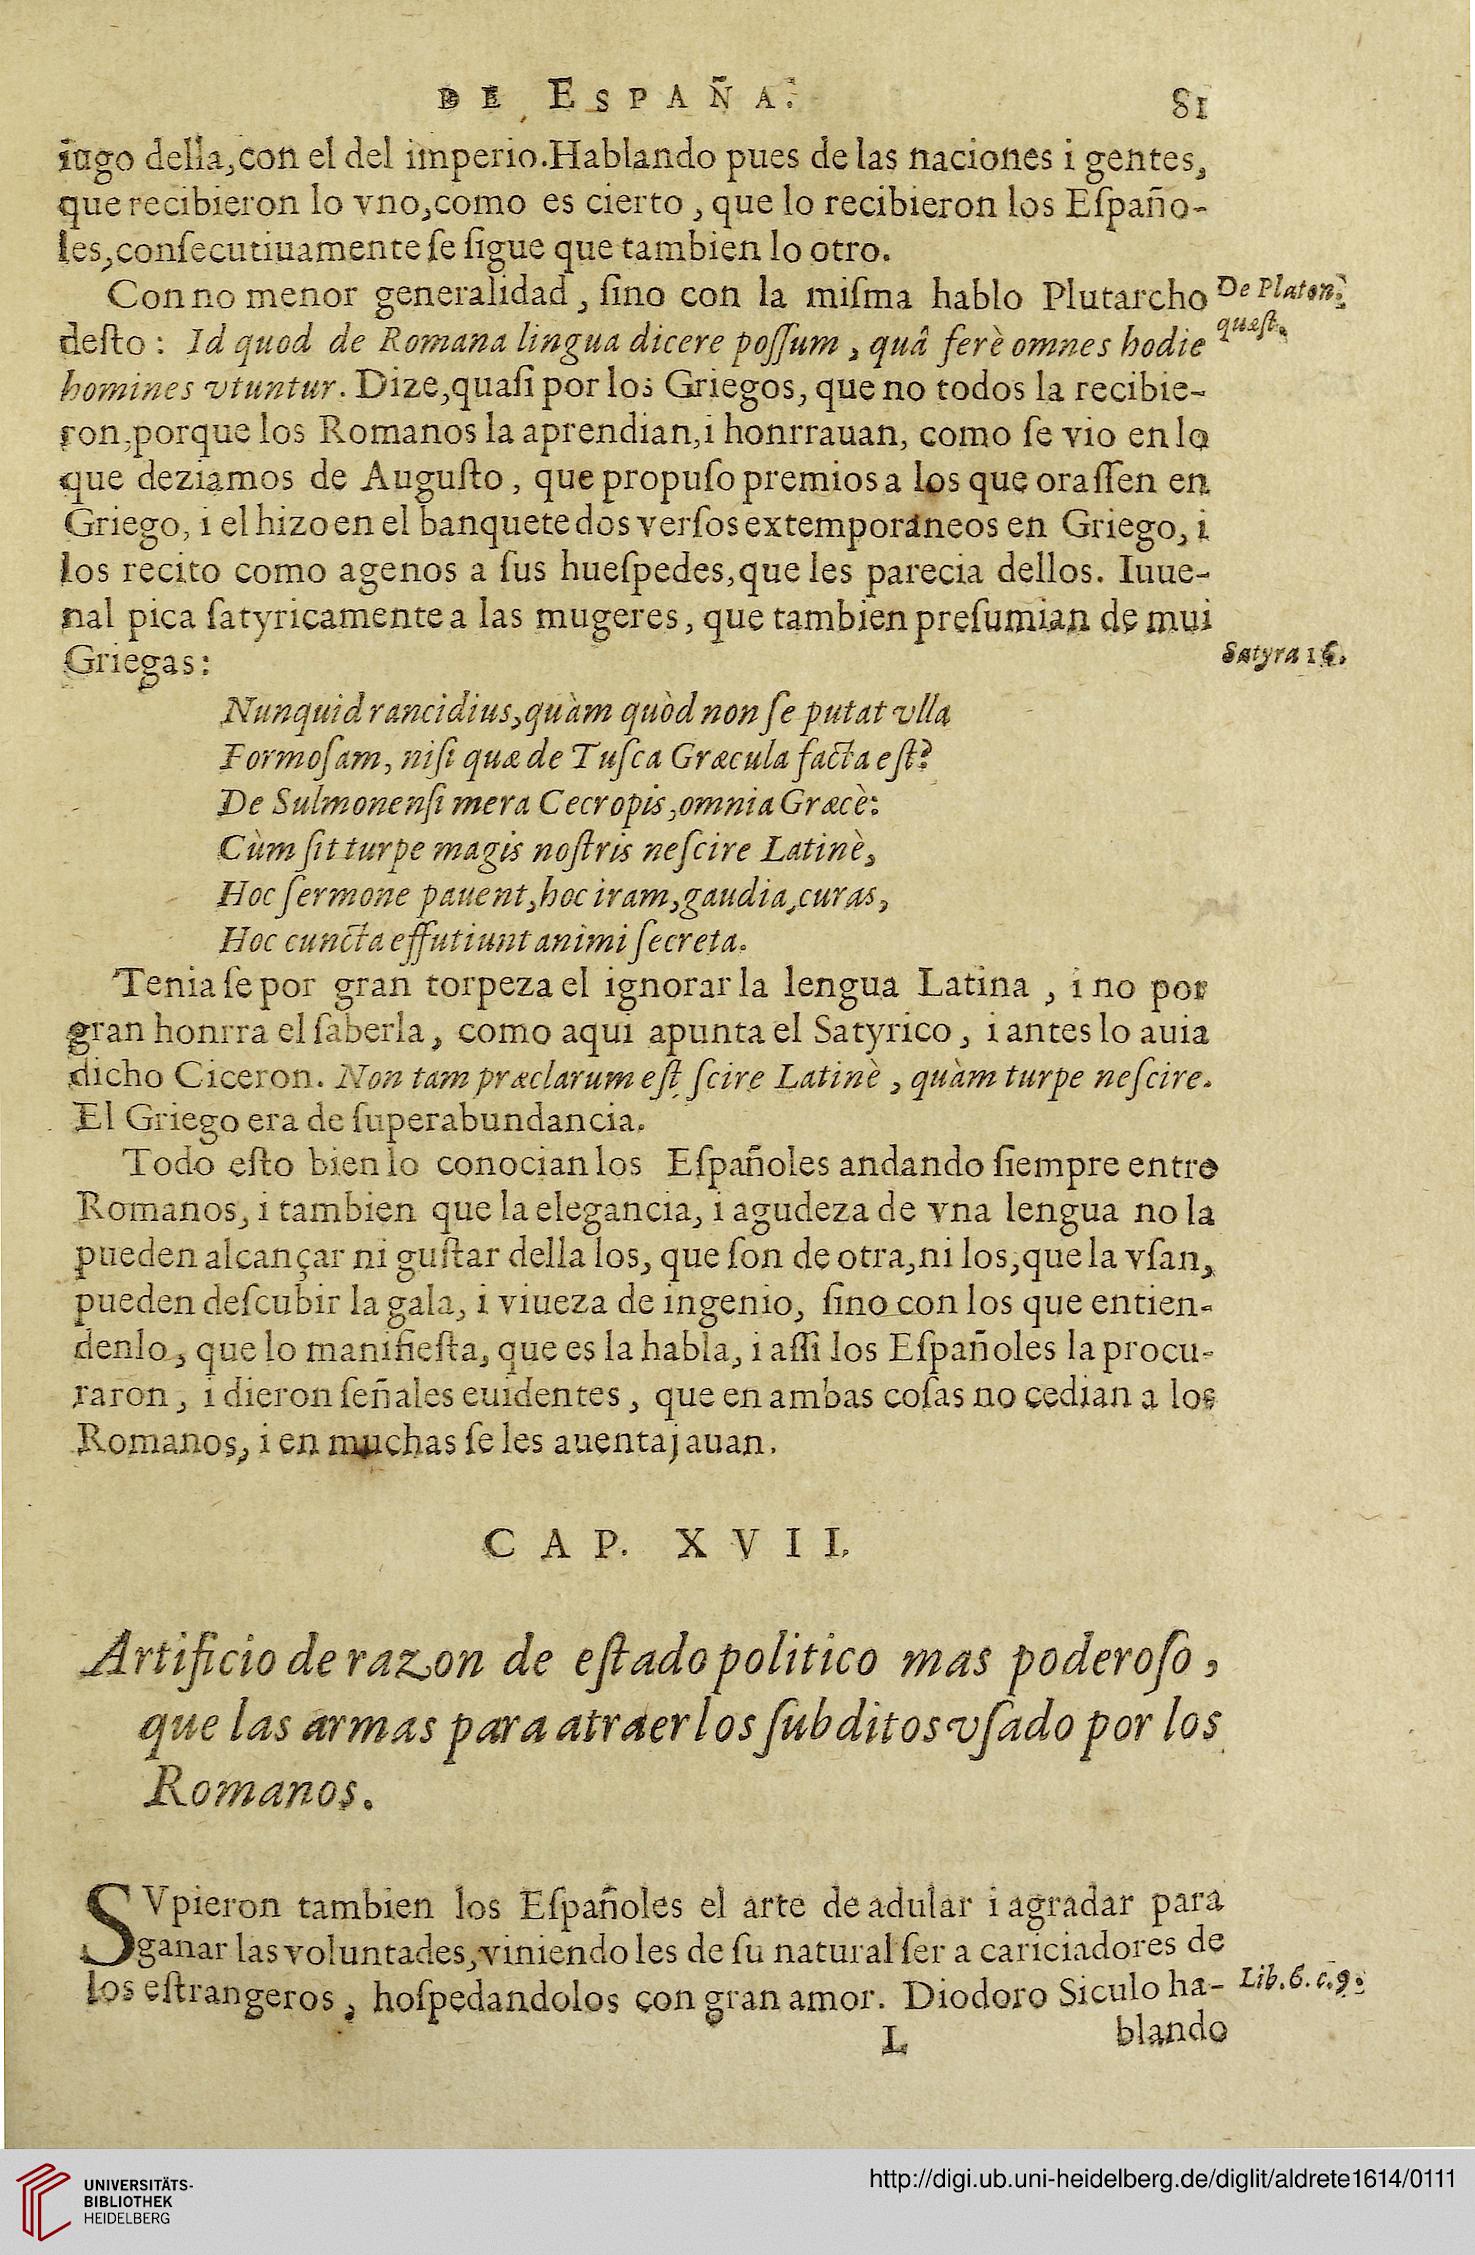 DE ESPAÑA. 81
iugo della,con el del imperio.Hablando pues de las naciones i gentes,
que recibieron lo vno,como es cierto , que lo recibieron los Eſpaño-
les,conſecutiuamente ſe ſigue que tambien lo otro.
Con no menor generalidad , ſino con la miſma hablo Plutarcho
De Platon.
deſto : Id quod de Romana lingua dicere poſſum , quâ ferè omnes hodie
quæſt.
homines vtuntur. Dize,quaſi por los Griegos, que no todos la recibie-
ron,porque los Romanos la aprendian,i honrrauan, como ſe vio en lo
que deziamos de Auguſto , que propuſo premios a los que oraſſen en
Griego, i el hizo en el banquete dos verſos extemporaneos en Griego, i
los recito como agenos a ſus hueſpedes,que les parecia dellos. Iuue-
nal pica ſatyricamente a las mugeres , que tambien preſumian de mui
Griegas:
Satyra 16.
Nunquid rancidius,quàm quòd non ſe putat vlla
Formoſam, niſi quæ de Tuſca Græcula facta eſt?
De Sulmonenſi mera Cecropis ,omnia Græcè:
Cùm ſit turpe magis noſtris neſcire Latinè,
Hoc ſermone pauent,hoc iram,gaudia,curas,
Hoc cuncta effutiunt animi ſecreta.
Tenia ſe por gran torpeza el ignorar la lengua Latina , i no por
gran honrra el ſaberla, como aqui apunta el Satyrico , i antes lo auia
dicho Ciceron. Non tam præclarum eſt ſcire Latinè , quàm turpe neſcire.
El Griego era de ſuperabundancia.
Todo eſto bien lo conocian los Eſpañoles andando ſiempre entre
Romanos, i tambien que la elegancia, i agudeza de vna lengua no la
pueden alcançar ni guſtar della los, que ſon de otra,ni los,que la vſan,
pueden deſcubir la gala, i viueza de ingenio, ſino con los que entien-
denlo , que lo manifieſta, que es la habla, i aſſi los Eſpañoles la procu-
raron , i dieron ſeñales euidentes , que en ambas coſas no cedian a los
Romanos, i en muchas ſe les auentajauan.
CAP. XVII.
Artificio de razon de eſtado politico mas poderoſo ,
que las armas para atraer los ſubditos vſado por los
Romanos.
SVpieron tambien los Eſpañoles el arte de adular i agradar para
ganar las voluntades,viniendo les de ſu natural ſer a cariciadores de
los eſtrangeros , hoſpedandolos con gran amor. Diodoro Siculo ha-
Lib.6.c.9.
L blando
UNIVERSITÄTS-
BIBLIOTHEK
HEIDELBERG
http://digi.ub.uni-heidelberg.de/diglit/aldrete1614/0111